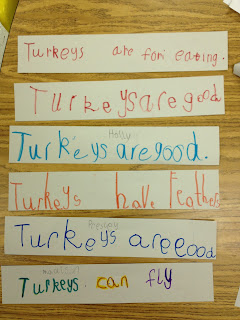 Turkeys are for eating.
Turkeys are good
Holly
Turkeys are good.
Turkeys have Feathers
Turkeys are eood
Turkeys can fly